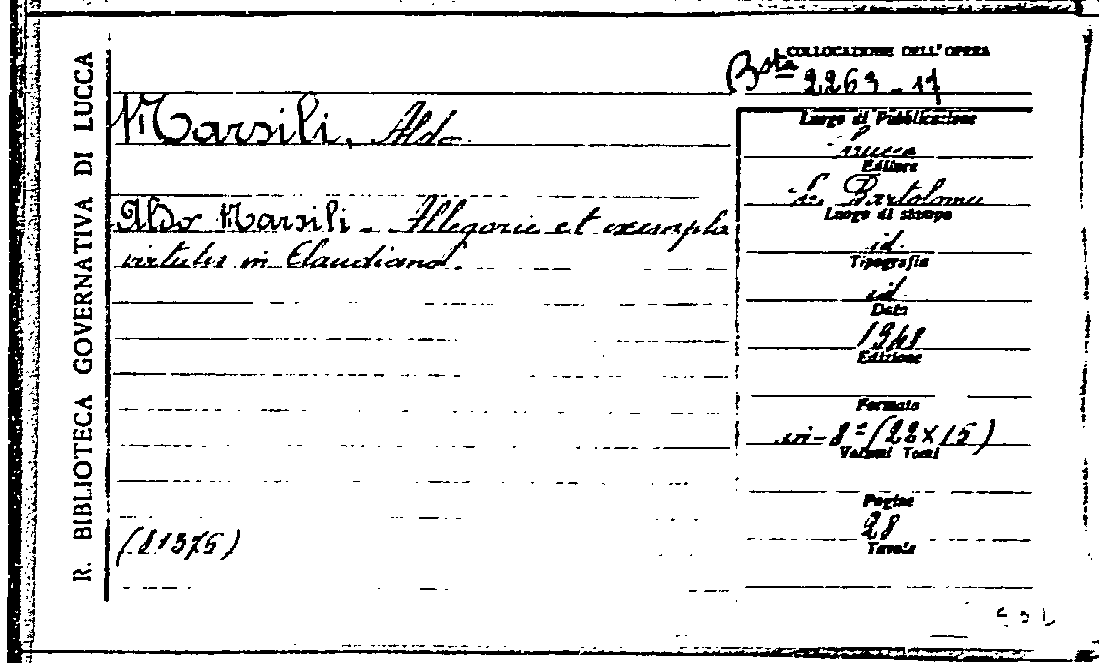 R. BIBLIOTECA GOVERNATIVA DI LUCCA
COLLOCAZIONE DELL'OPERA
Bsta 2263-17
Marsili, Aldo
Aldo Marsili - Allegorie et exempla
virtutes in Claudiano.
(81375)
Luogo di Pubblicazione
Lucca
Editore
Bartolomei
Luogo di stampa
id.
Tipografia
id.
Data
1948
Edizione
Formato
in-8° (22x15)
Volumi Tomi
Pagine
28
Tavole